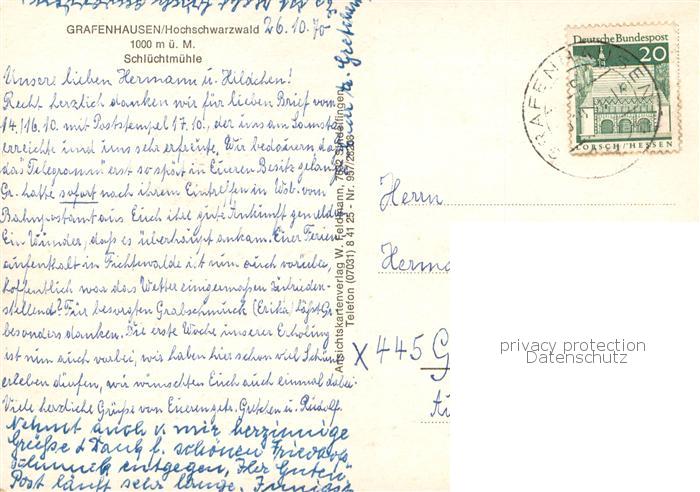 GRAFENHAUSEN/Hochschwarzwald 26.10.70
1000 m ü. M.
Schlüchtmühle
Unsere lieben Hermann u. Hildchen!
Recht herzlich danken wir für lieben Brief vom
14./16.10. mit Poststempel 17.10., der uns am Samstag
erreichte und uns sehr erfreute. Wir bedauern daß
das "Telegramm" erst so spät in Eueren Besitz gelangte
Gr. hatte sofort nach ihrem Eintreffen in Wbl. vom
Bahnpostamt aus Euch ihre gute Ankunft gemeldet
Ein Wunder, daß es überhaupt ankam. Euer Ferien
aufenthalt in Fichtewalde ist nun auch vorüber,
hoffentlich war das Wetter einigermaßen zufrieden-
stellend? Für besorgten Grabschmuck (Erika) läßt Gr.
besonders danken. Die erste Woche unserer Erholung
ist nun auch vorbei, wir haben hier schon viel Schönes
erleben dürfen, wir wünschten Euch auch einmal dabei.
Viele herzliche Grüße von Eueren getr. Gretchen u. Rudolf.
Nehmt auch v. mir herzinnige
Grüße & Dank f. schönen Friedhofs
schmuck entgegen,
Post läuft sehr lange. Innigst
Ansichtskartenverlag W. Feldmann, 7032 Sindelfingen
Telefon (07031) 8 41 25 - Nr. 957/2808
Deutsche Bundespost
20
LORSCH/HESSEN
GRAFENHAUSEN
Herrn
Herma
445 G
privacy protection
Datenschutz